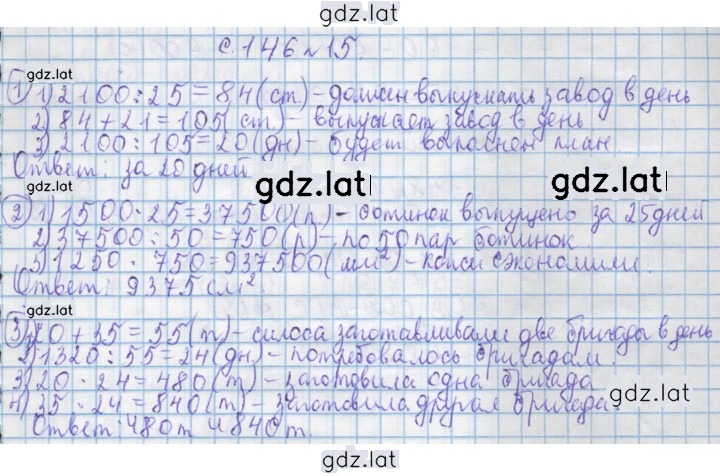 gdz.lat
с. 146 № 15.
gdz.lat
1) 1) 2100 : 25 = 84 (ст) - должен выпускать завод в день
2) 84 + 21 = 105 (ст) - выпускает завод в день
3) 2100 : 105 = 20 (дн) - будет выполнен план.
Ответ: за 20 дней
gdz.lat
gdz.lat
2) 1) 1500 · 25 = 37500 (п) - ботинок выпущено за 25 дней
2) 37500 : 50 = 750 (р) - по 50 пар ботинок
3) 1250 · 750 = 937500 (мм²) - кожи сэкономили.
Ответ: 9375 см²
gdz.lat
3) 1) 20 + 35 = 55 (т) - силоса заготавливали две бригады в день
2) 1320 : 55 = 24 (дн) - потребовалось бригадам.
gdz.lat
3) 20 · 24 = 480 (т) - заготовила одна бригада
4) 35 · 24 = 840 (т) - заготовила другая бригада.
Ответ: 480 т и 840 т.
gdz.lat